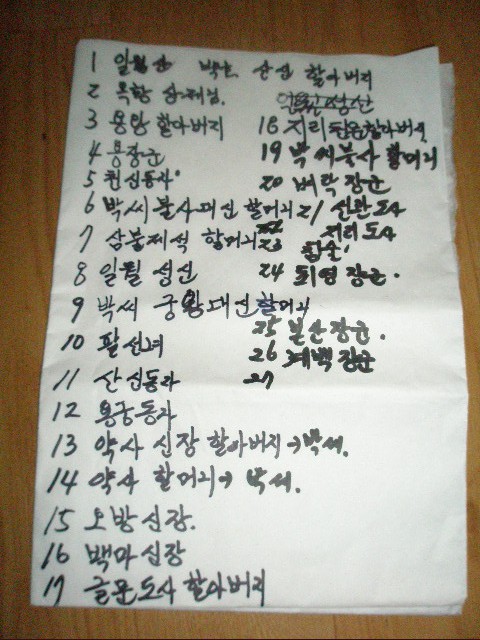 1 일월산 박씨 산신 할아버지
2 옥황
3 용왕 할아버지
4 용장군
5 천신동자
6 박씨 불사대신 할머니
7 삼불제석 할머니
8 일월 성신
9 박씨 궁왕대신할머니
10 팔선녀
11 산신동자
12 용궁동자
13 약사 신장 할아버지→박씨.
14 약사 할머니→ 박씨.
15 오방신장.
16 백마신장
17 글문도사 할아버지
18 지리 할아버지
19 박씨불사 할머니
20 벼락장군
21 신관도사
22 지리도사
23
24 최영장군.
25 본산장군.
26 태백장군
27